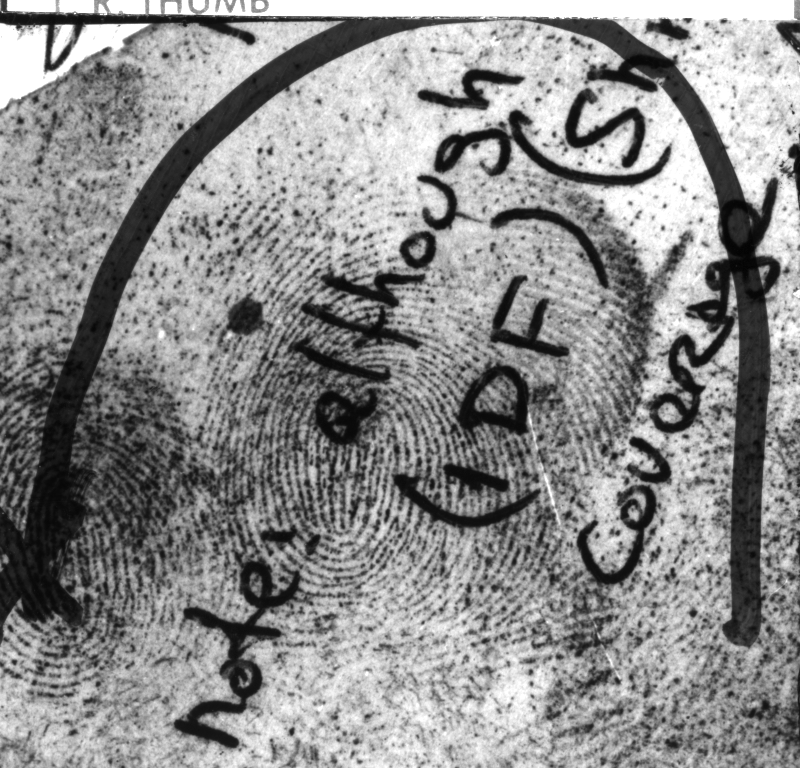 R. THUMB
note: although
(IDF) (Sh
Coverage